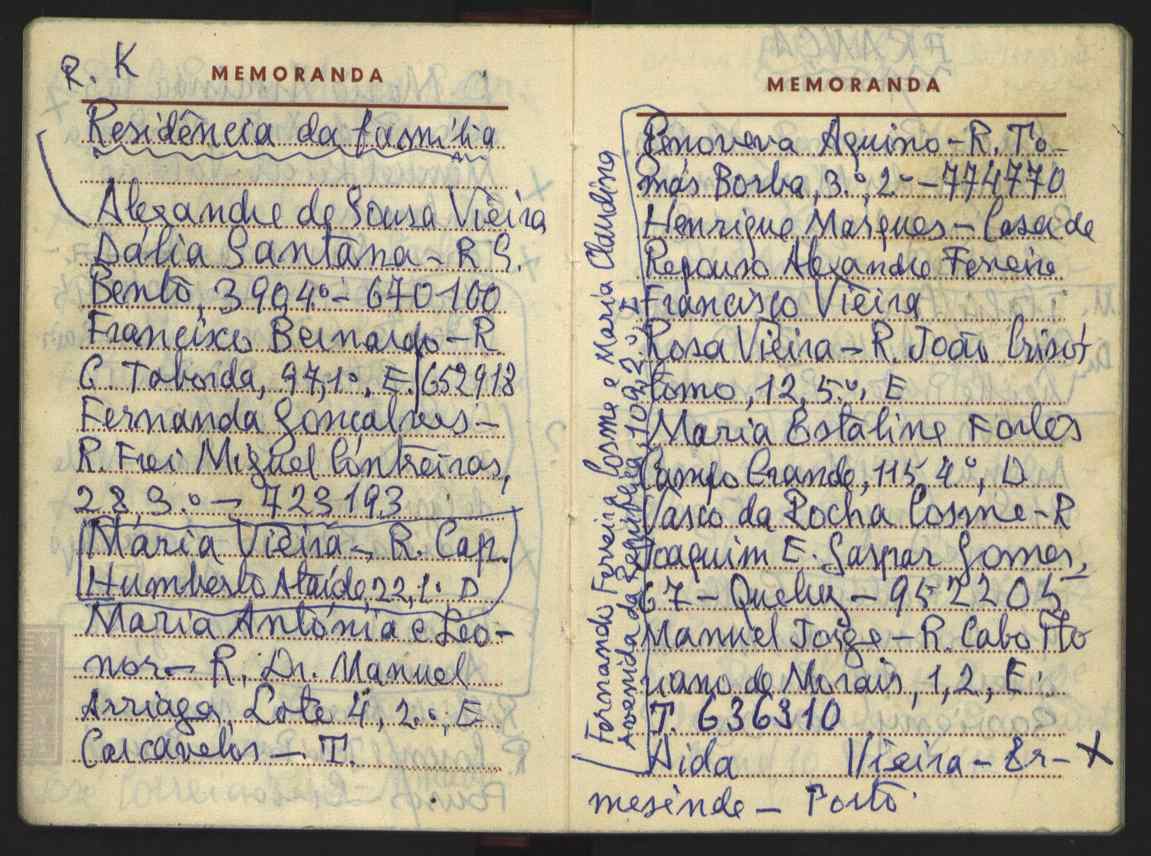 R. K
MEMORANDA
Residência da família
Alexandre de Sousa Vieira
Dália Santana - R S.
Bento, 390, 4º - 670100
Francisco Bernardo - R
C. Taborda, 97, 1º, E. 652918
Fernanda Gonçalves -
R. Frei Miguel Contreiras,
28 3.º - 723193
Maria Vieira - R. Cap.
Humberto Ataíde, 22, 1. D
Maria Antónia e Leo-
nor - R. Dr. Manuel
Arriaga, Lote 4, 2.º, E.
Carcavelos - T.
MEMORANDA
Fernando Ferreira Cosme e Maria Claudina
Avenida da República, 109, 2.º, E
Genoveva Aquino - R. To-
más Borba, 3.º, 2º - 774770
Henrique Marques - Casa de
Repouso Alexandre Ferreira
Francisco Vieira
Rosa Vieira - R. João Crisós
tomo, 12, 5.º, E
Maria Estaline Fortes
Campo Grande, 115, 4º, D
Vasco da Rocha Cosme - R
Joaquim E. Gaspar Gomes,
67 - Queluz - 952205
Manuel Jorge - R. Cabo Flo
riano de Morais, 1, 2, E.
T. 636310
Aida Vieira - Er- X
mesinde - Porto.